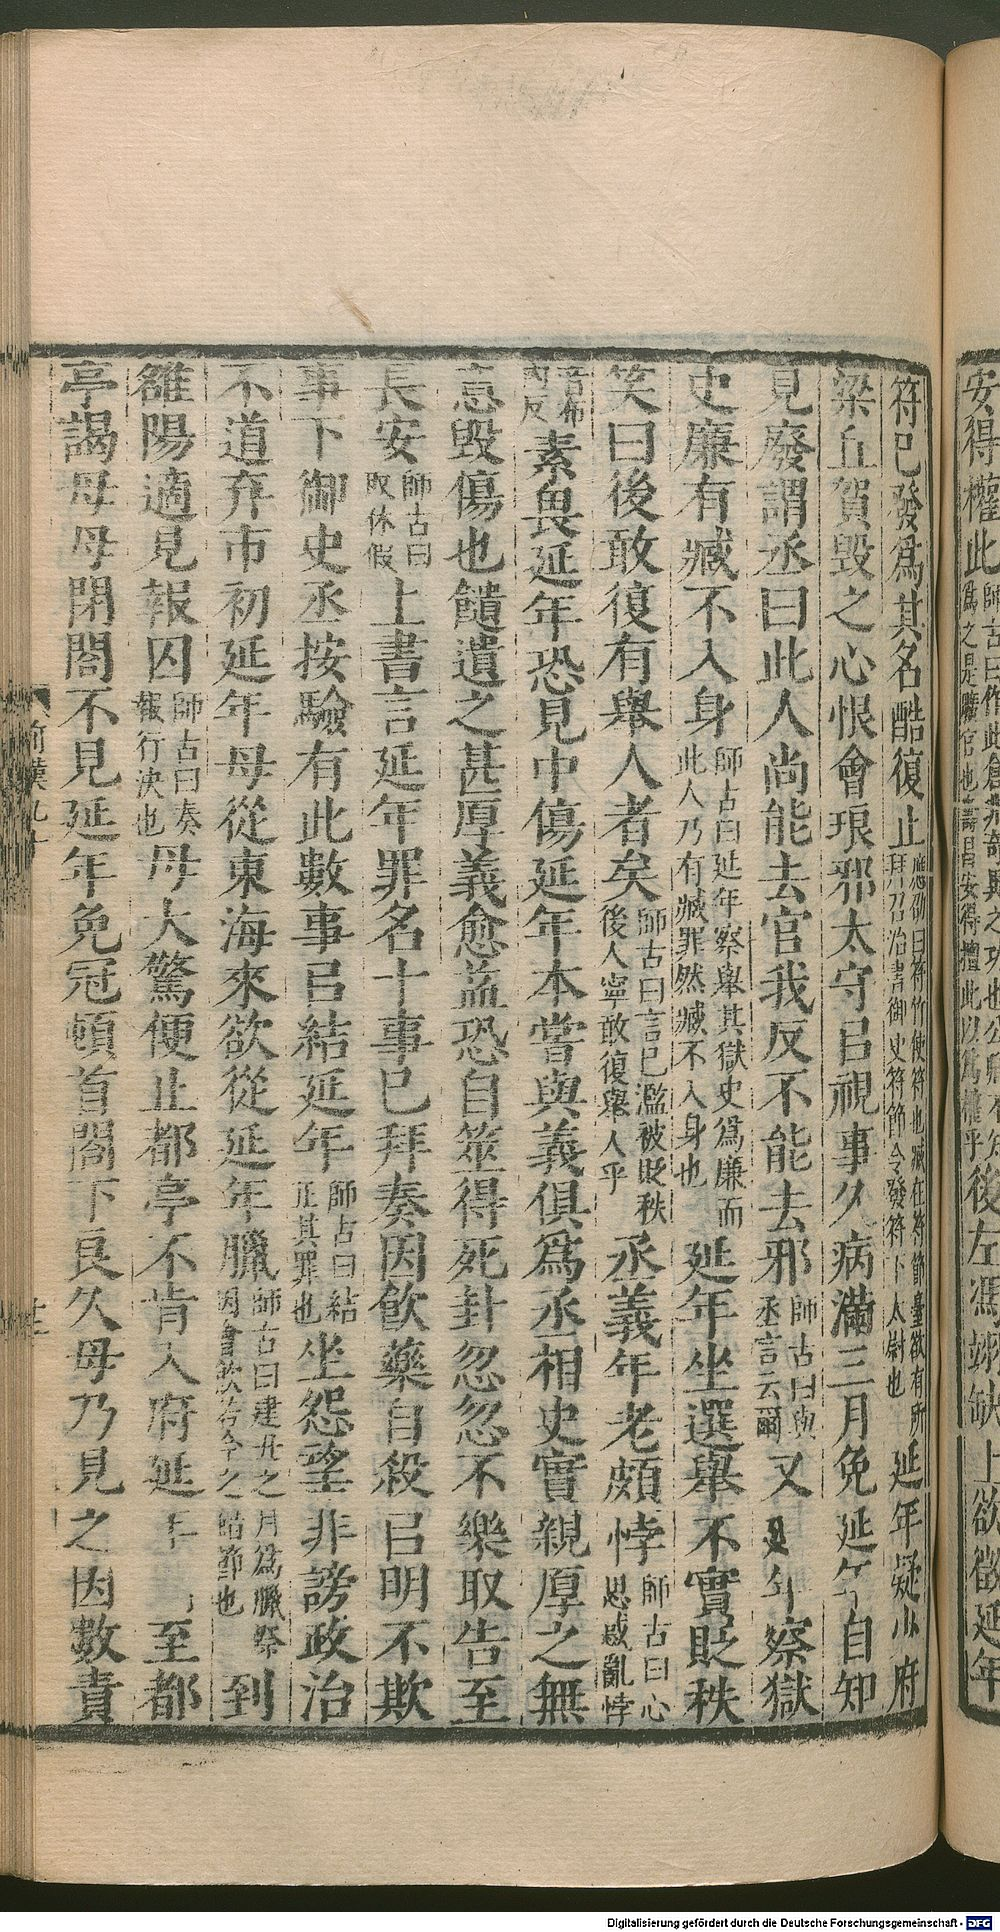 安得權此師古曰作此爲之是曠官也後左馮翊缺上欲徵延年
符已發爲其名酷復止應劭曰符竹使符也臧在符節臺欲有所拜召治書御史符節令發符下太尉也延年疑少府
梁丘賀毀之心恨會琅邪太守㠯視事久病滿三月免延年自知
見廢謂丞曰此人尚能去官我反不能去邪師古曰與丞言云爾又延年察獄
史廉有臧不入身師古曰延年察舉其獄史爲廉而此人乃有臧罪然臧不入身也延年坐選舉不實貶秩
笑曰後敢復有舉人者矣師古曰言已濫被貶秩後人寧敢復舉人乎丞義年老頗悖師古曰心思惑亂悖
音布內反素畏延年恐見中傷延年本嘗與義俱爲丞相史實親厚之無
意毀傷也饋遺之甚厚義愈益恐自筮得死卦忽忽不樂取告至
長安師古曰取休假上書言延年罪名十事已拜奏因飲藥自殺㠯明不欺
事下御史丞按驗有此數事㠯結延年師古曰結正其罪也坐怨望非謗政治
不道弃市初延年母從東海來欲從延年臘師古曰建丑之月爲臘祭因會飲若今之蜡節也到
雒陽適見報囚師古曰奏報行決也母大驚便止都亭不肯入府延年至都
亭謁母母閉閤不見延年免冠頓首閤下良久母乃見之因數責
Digitalisierung gefördert durch die Deutsche Forschungsgemeinschaft - DFG